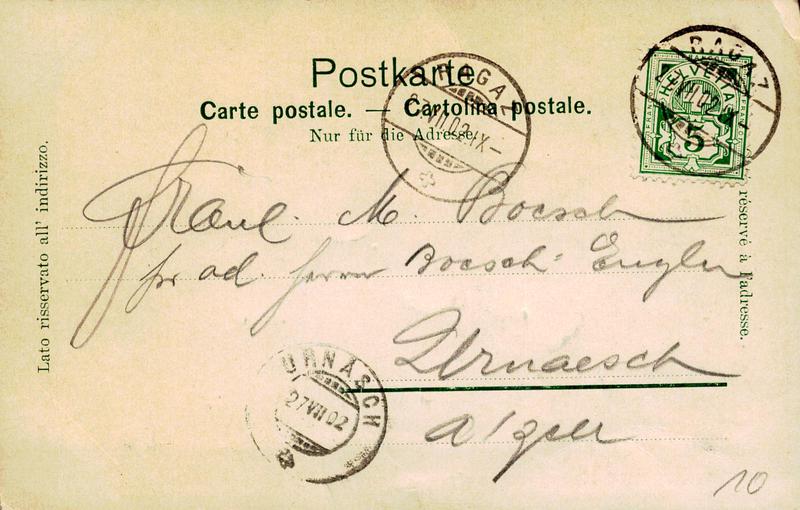 Postkarte
Carte postale. — Cartolina postale.
Nur für die Adresse.
RAGAZ
VII.02.IX–
RAGAZ
VII.02
HELVETIA
5
Lato risservato all' indirizzo.
réservé à l'adresse.
Fräul. M. Boesch
pr ad. Herrn Boesch-Engler
Urnaesch
URNÄSCH
27 VII 02
10